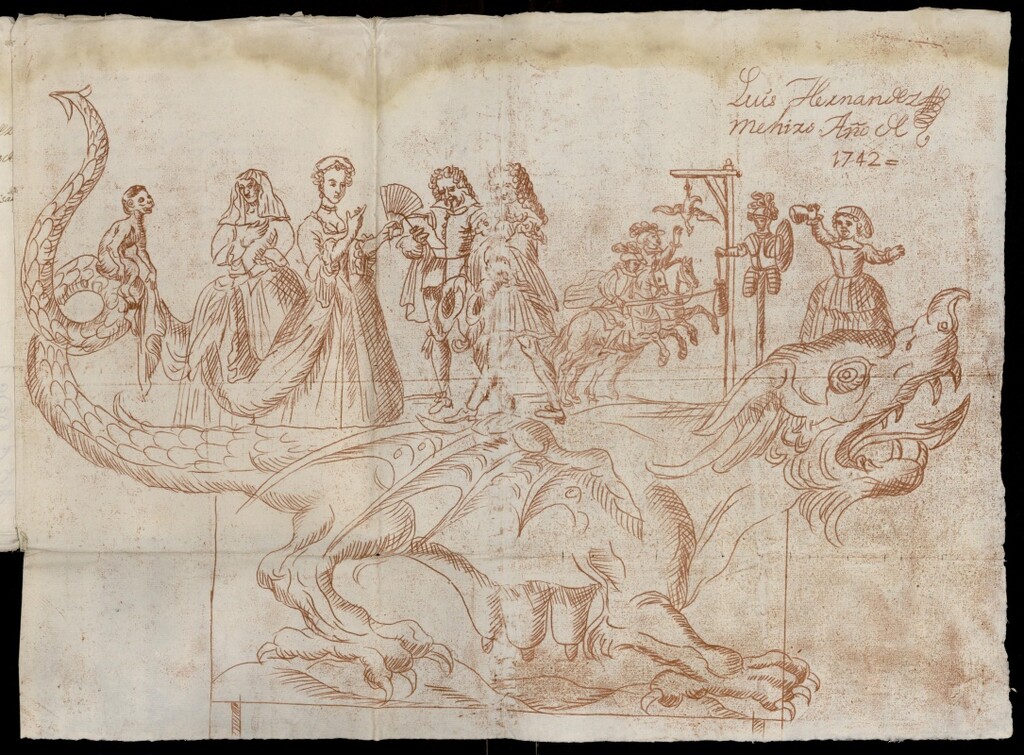 Luis Hernandez
Menizo Año de
1742=